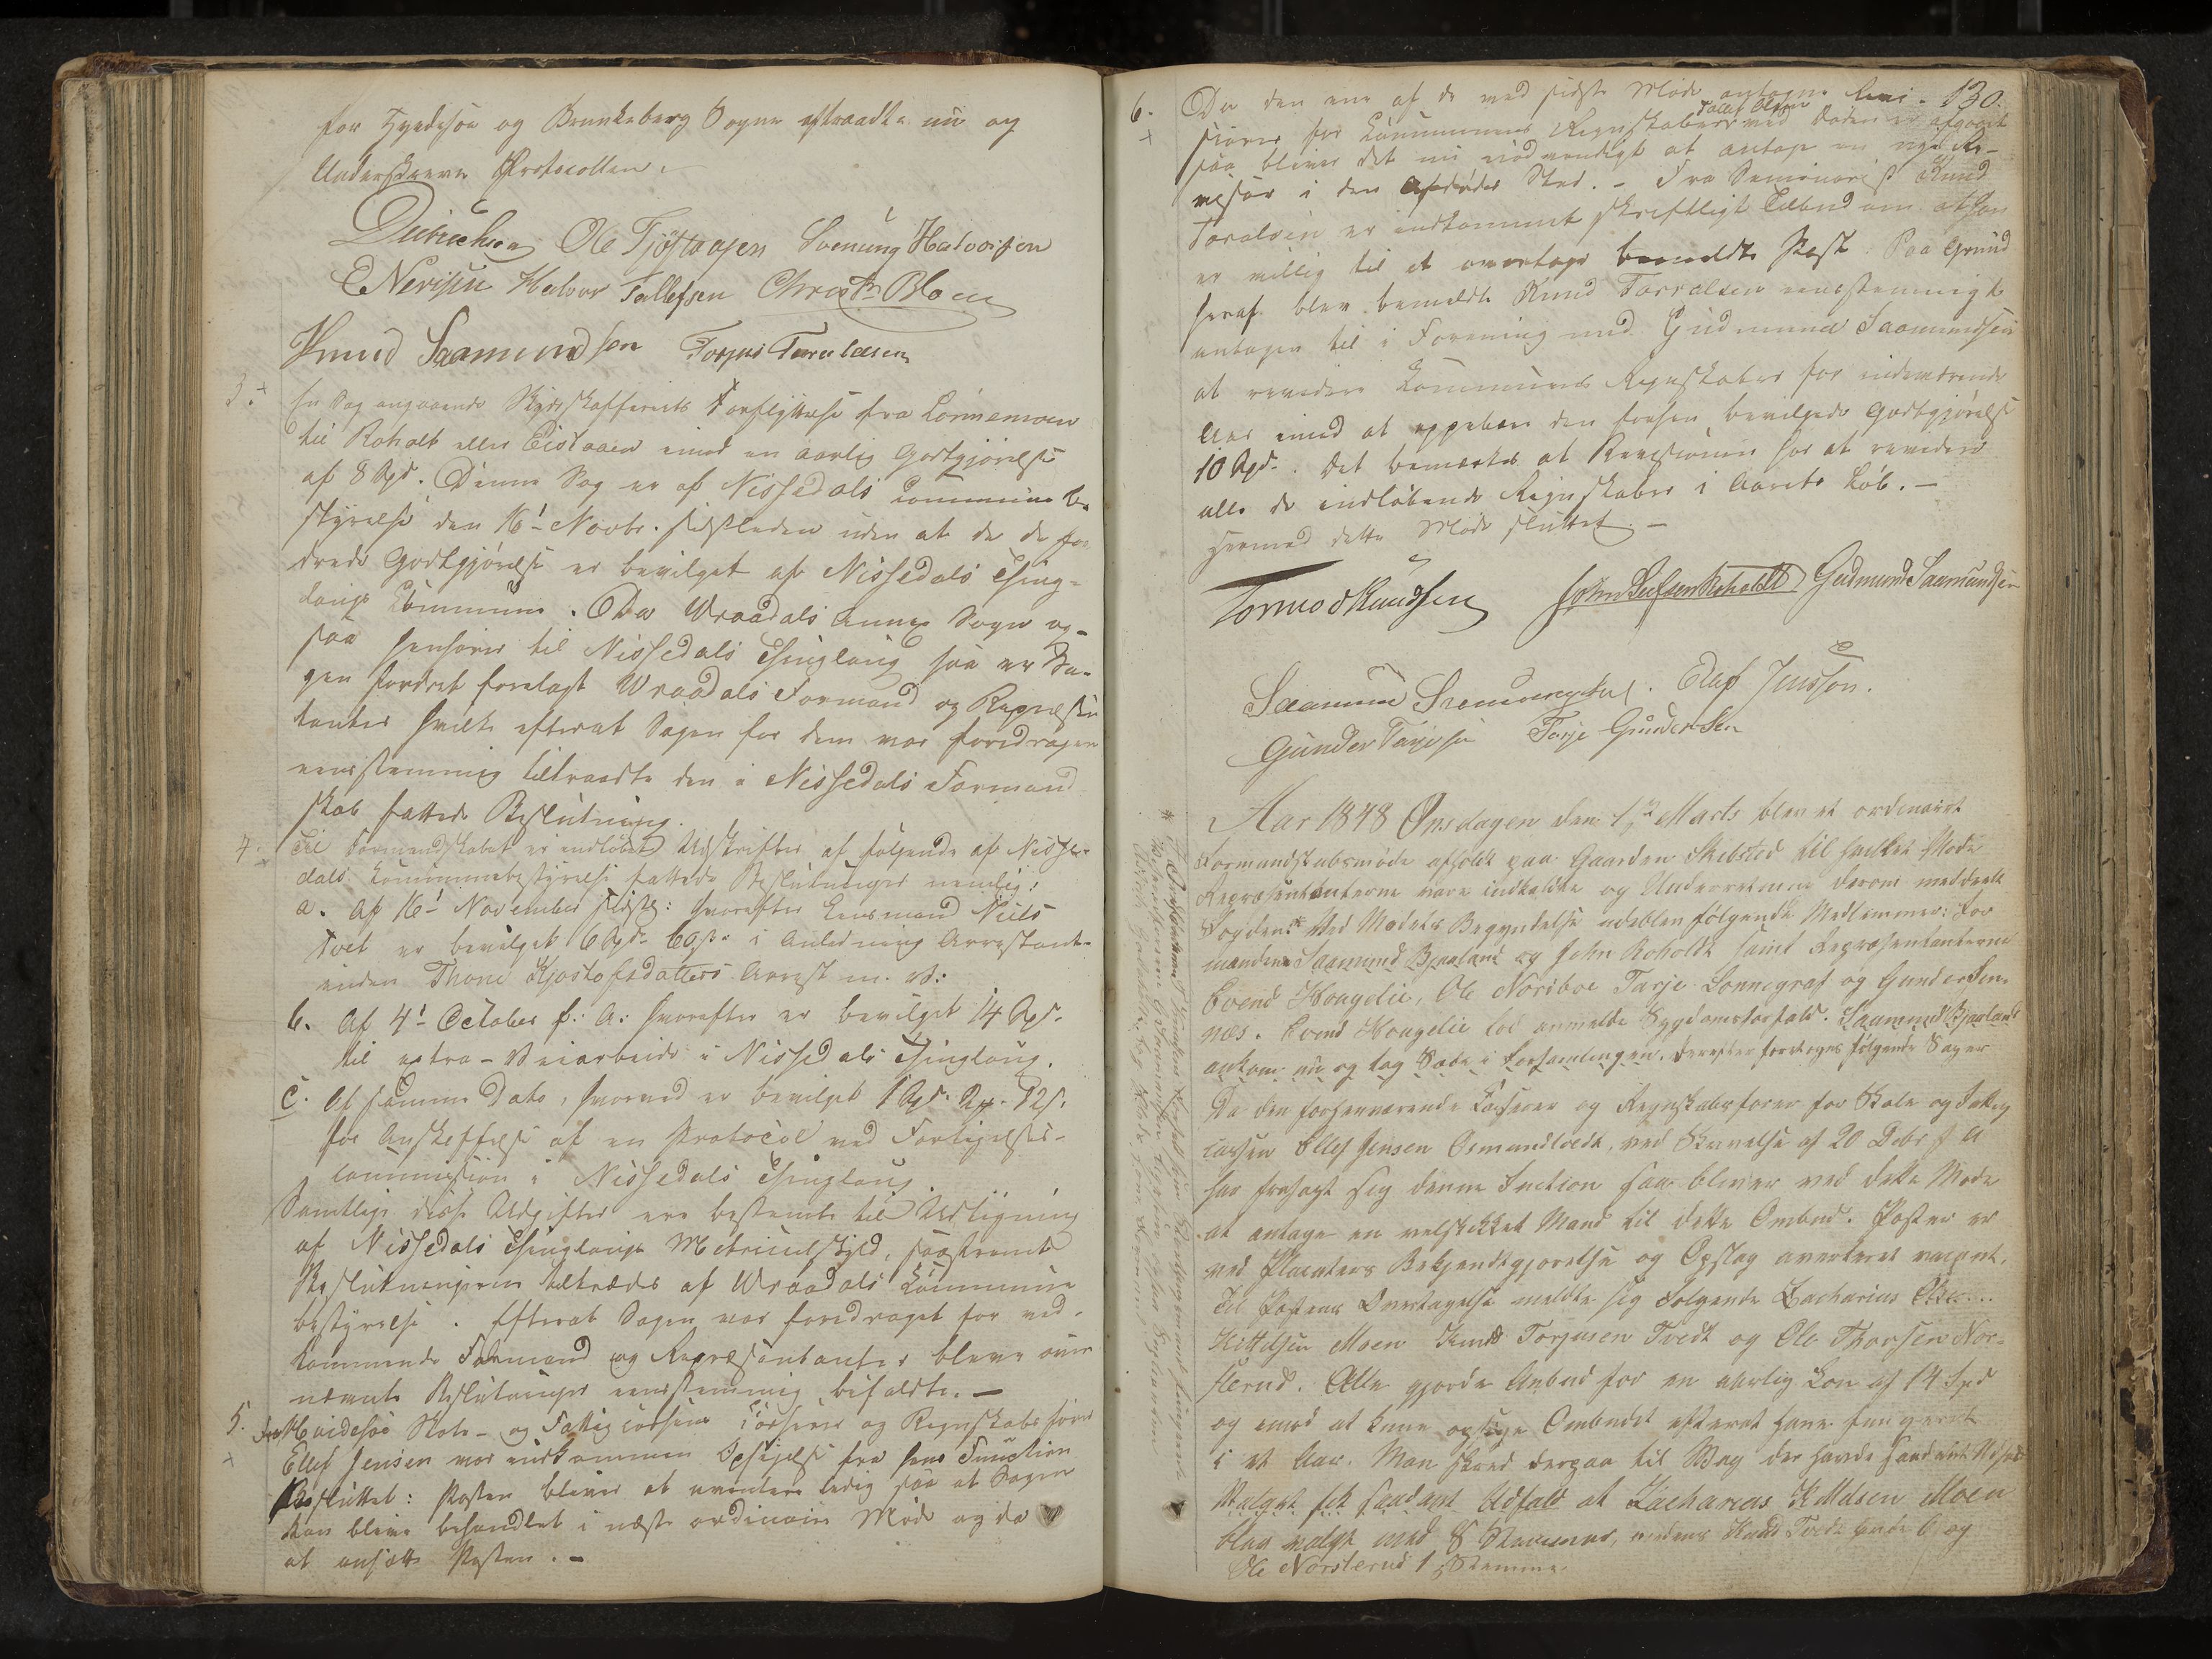 for Hvidesøe og Brunkeberg Sogne aftraadte nu og
Underskreve Protocollen.
Ole Tjøstolvsen Svenung Halvorsen
Halvor Tallefsen Christn Bloem
Knud Saamundsen Torjus Taraldsen
3. En Sag angaaende Skydsskafferiets Forflyttelse fra
til Roholt eller imod en aarlig Godtgjørelse
af 8 Spd. Denne Sag er af Nissedals Commune be-
styrelse den 16de Novbr. sidstleden uden at de for
drede Godtgjørelse er bevilget af Nissedals Thing-
laugs Commune. Da Wraadals Annex Sogn og-
saa henhører til Nissedals Thinglaug saa er Sa-
gen fordret forelagt Wraadals Formænd og Repræsen
tanter hvilke efterat Sagen for dem var foredragen
eenstemmig tiltraadte den i Nissedals Formand
skab fattede Beslutning.
4. Til Formandskabet er indløbet Udskrifter af følgende af Nisse-
dals Communebestyrelse fattede Beslutninger nemlig:
a. Af 16de November sidstl: hvorefter Lensmand Niels
Tvet er bevilget 6 Spd. 60 s i Anledning Arrestant-
inden Thone Kjøstofsdatters Arrest m. v:
b. Af 4de October f: A: hvorefter er bevilget 14 Spd.
til extra-Veiarbeide i Nissedals Thinglaug.
c. Af samme Dato, hvorved er bevilget 1 Spd.
for Anskaffelse af en Protocol ved Forligelses-
commission i Nissedals Thinglaug.
Samtlige disse Udgifter ere bestemte til Udligning
af Nissedals Thinglaugs Matriculskyld, saafremt
Beslutningerne tiltrædes af Wraadals Commune
bestyrelse. Efterat Sagen var foredraget for ved-
kommende Formænd og Repræsentanter bleve oven
nævnte Beslutninger eenstemmig bifaldte. —
5. Fra Hvidesøe Skole- og Fattigcassens Casserer og Regnskabsfører
Ellef Jensen var indkommen Opsigelse fra hans Function
Besluttet: Posten bliver at avertere ledig saa at Sagen
kan blive behandlet i næste ordinaire Møde og da
at ansætte Posten. —
130.
6. Da den ene af de ved sidste Møde antagne Revi-
Tallef Olsen
sorer for Communens Regnskaber ved Døden er afgaaet
saa bliver det nu nødvendigt at antage en nye Re-
visor i den Afdødes Sted. — Fra Seminarist Knud
Taralsen er indkommet skriftligt Tilbud om at han
er villig til at overtage bemeldte Post. Paa Grund
heraf blev bemeldte Knud Tarralsen eenstemmigt
antagen til i Forening med Gudmund Saamundsen
at revidere Communens Regnskaber for indeværende
Aar imod at oppebære den forhen bevilgede Godtgjørelse
10 Spd. Det bemærkes at Revisionen har at revidere
alle de indløbende Regnskaber i Aarets Løb. —
Hermed dette Møde sluttet. —
Tormod Knudsen John Leifsen Roholdt Gudmund Saamundsen
Saamund Olaf Jensson.
Gunder Tarjesen Tarje Gundersen
Aar 1848 Onsdagen den 1ste Marts blev et ordinairt
Formandskabsmøde afholdt paa Gaarden Skibsted til hvilket Møde
Repræsentanterne vare indkaldte og Underretning derom meddeelt
Fogden.* Ved Mødets Begyndelse udeblev følgende Medlemmer: For
mændene Saamund Bjaaland og John Roholdt samt Repræsentanterne
Evend Hougelie, Ole Nordboe Tarje Lønnegraf og Gunder Sem-
næs. Evend Hougelie lod anmelde Sygdomsforfald. Saamund Bjaaland
ankom nu og tog Sæde i Forsamlingen. Derefter foretoges følgende Sager
Da den forhenværende Casserer og Regnskabsfører for Skole og Fattig
cassen Ellef Jensen Osmundtvedt, ved Skrivelse af 20 Debr f A
har frasagt sig denne Function saa bliver ved dette Møde
at antage en velskikket Mand til dette Ombud. Posten er
ved Placaters Bekjendtgjørelse og Opslag averteret vacant.
Til Postens Overtagelse meldte sig følgende Zacharias
Kittelsen Moen Knud Torjusen Tvedt og Ole Thorsen Nor-
sterud. Alle gjorde Anbud for en aarlig Løn af 14 Spd
og imod at kune opsige Ombudet efterat have fungeret
i et Aar. Man skred derpaa til Valg der havde saadant Udfald
Valget fik saadant Udfald at Zacharias Kittelsen Moen
blev valgt med 8 Stemmer, medens Knud Tvedt havde 6 og
Ole Norsterud 1 Stemme.